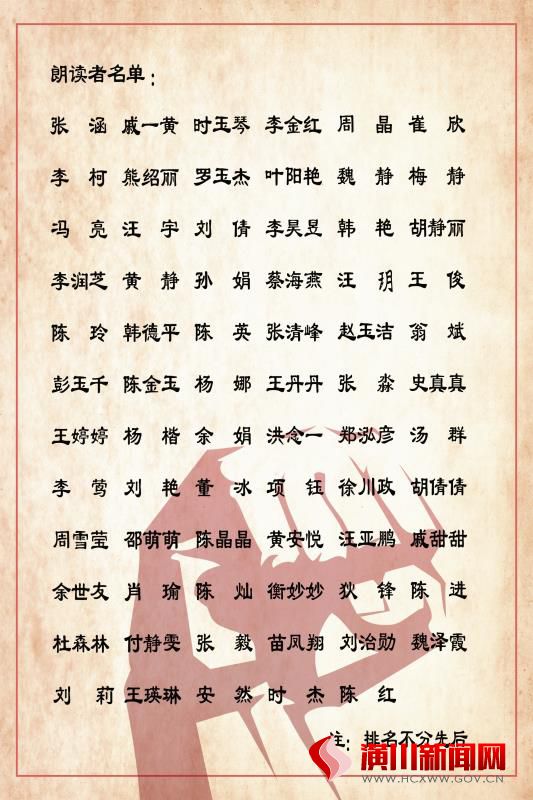 朗读者名单：
张 涵 戚一黄 时玉琴 李金红 周 晶 崔 欣
李 柯 熊绍丽 罗玉杰 叶阳艳 魏 静 梅 静
冯 亮 汪 宇 刘 倩 李昊昱 韩 艳 胡静丽
李润芝 黄 静 孙 娟 蔡海燕 汪 玥 王 俊
陈 玲 韩德平 陈 英 张清峰 赵玉洁 翁 斌
彭玉千 陈金玉 杨 娜 王丹丹 张 淼 史真真
王婷婷 杨 楷 余 娟 洪念一 郑泓彦 汤 群
李 莺 刘 艳 董 冰 项 钰 徐川政 胡倩倩
周雪莹 邵萌萌 陈晶晶 黄安悦 汪亚鹏 戚甜甜
余世友 肖 瑜 陈 灿 衡妙妙 狄 锋 陈 进
杜森林 付静雯 张 毅 苗凤翔 刘治勋 魏泽霞
刘 莉 王瑛琳 安 然 时 杰 陈 红
注：排名不分先后
潢川新闻网
WWW.HCXWW.GOV.CN